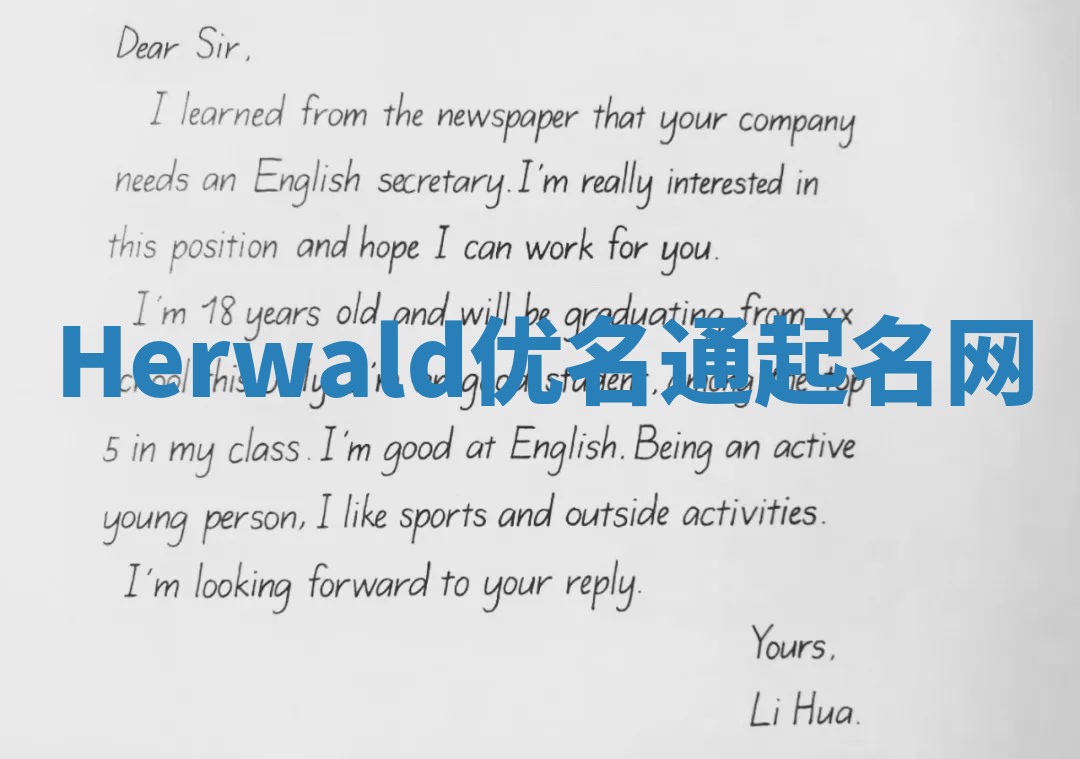 Dear Sir,
I learned from the newspaper that your company
needs an English secretary. I'm really interested in
this position and hope I can work for you.
I'm 18 years old and will be graduating from xx
Herwald优名通起名网
school this July. I'm a good student, among the top
5 in my class. I'm good at English. Being an active
young person, I like sports and outside activities.
I'm looking forward to your reply.
Yours,
Li Hua.